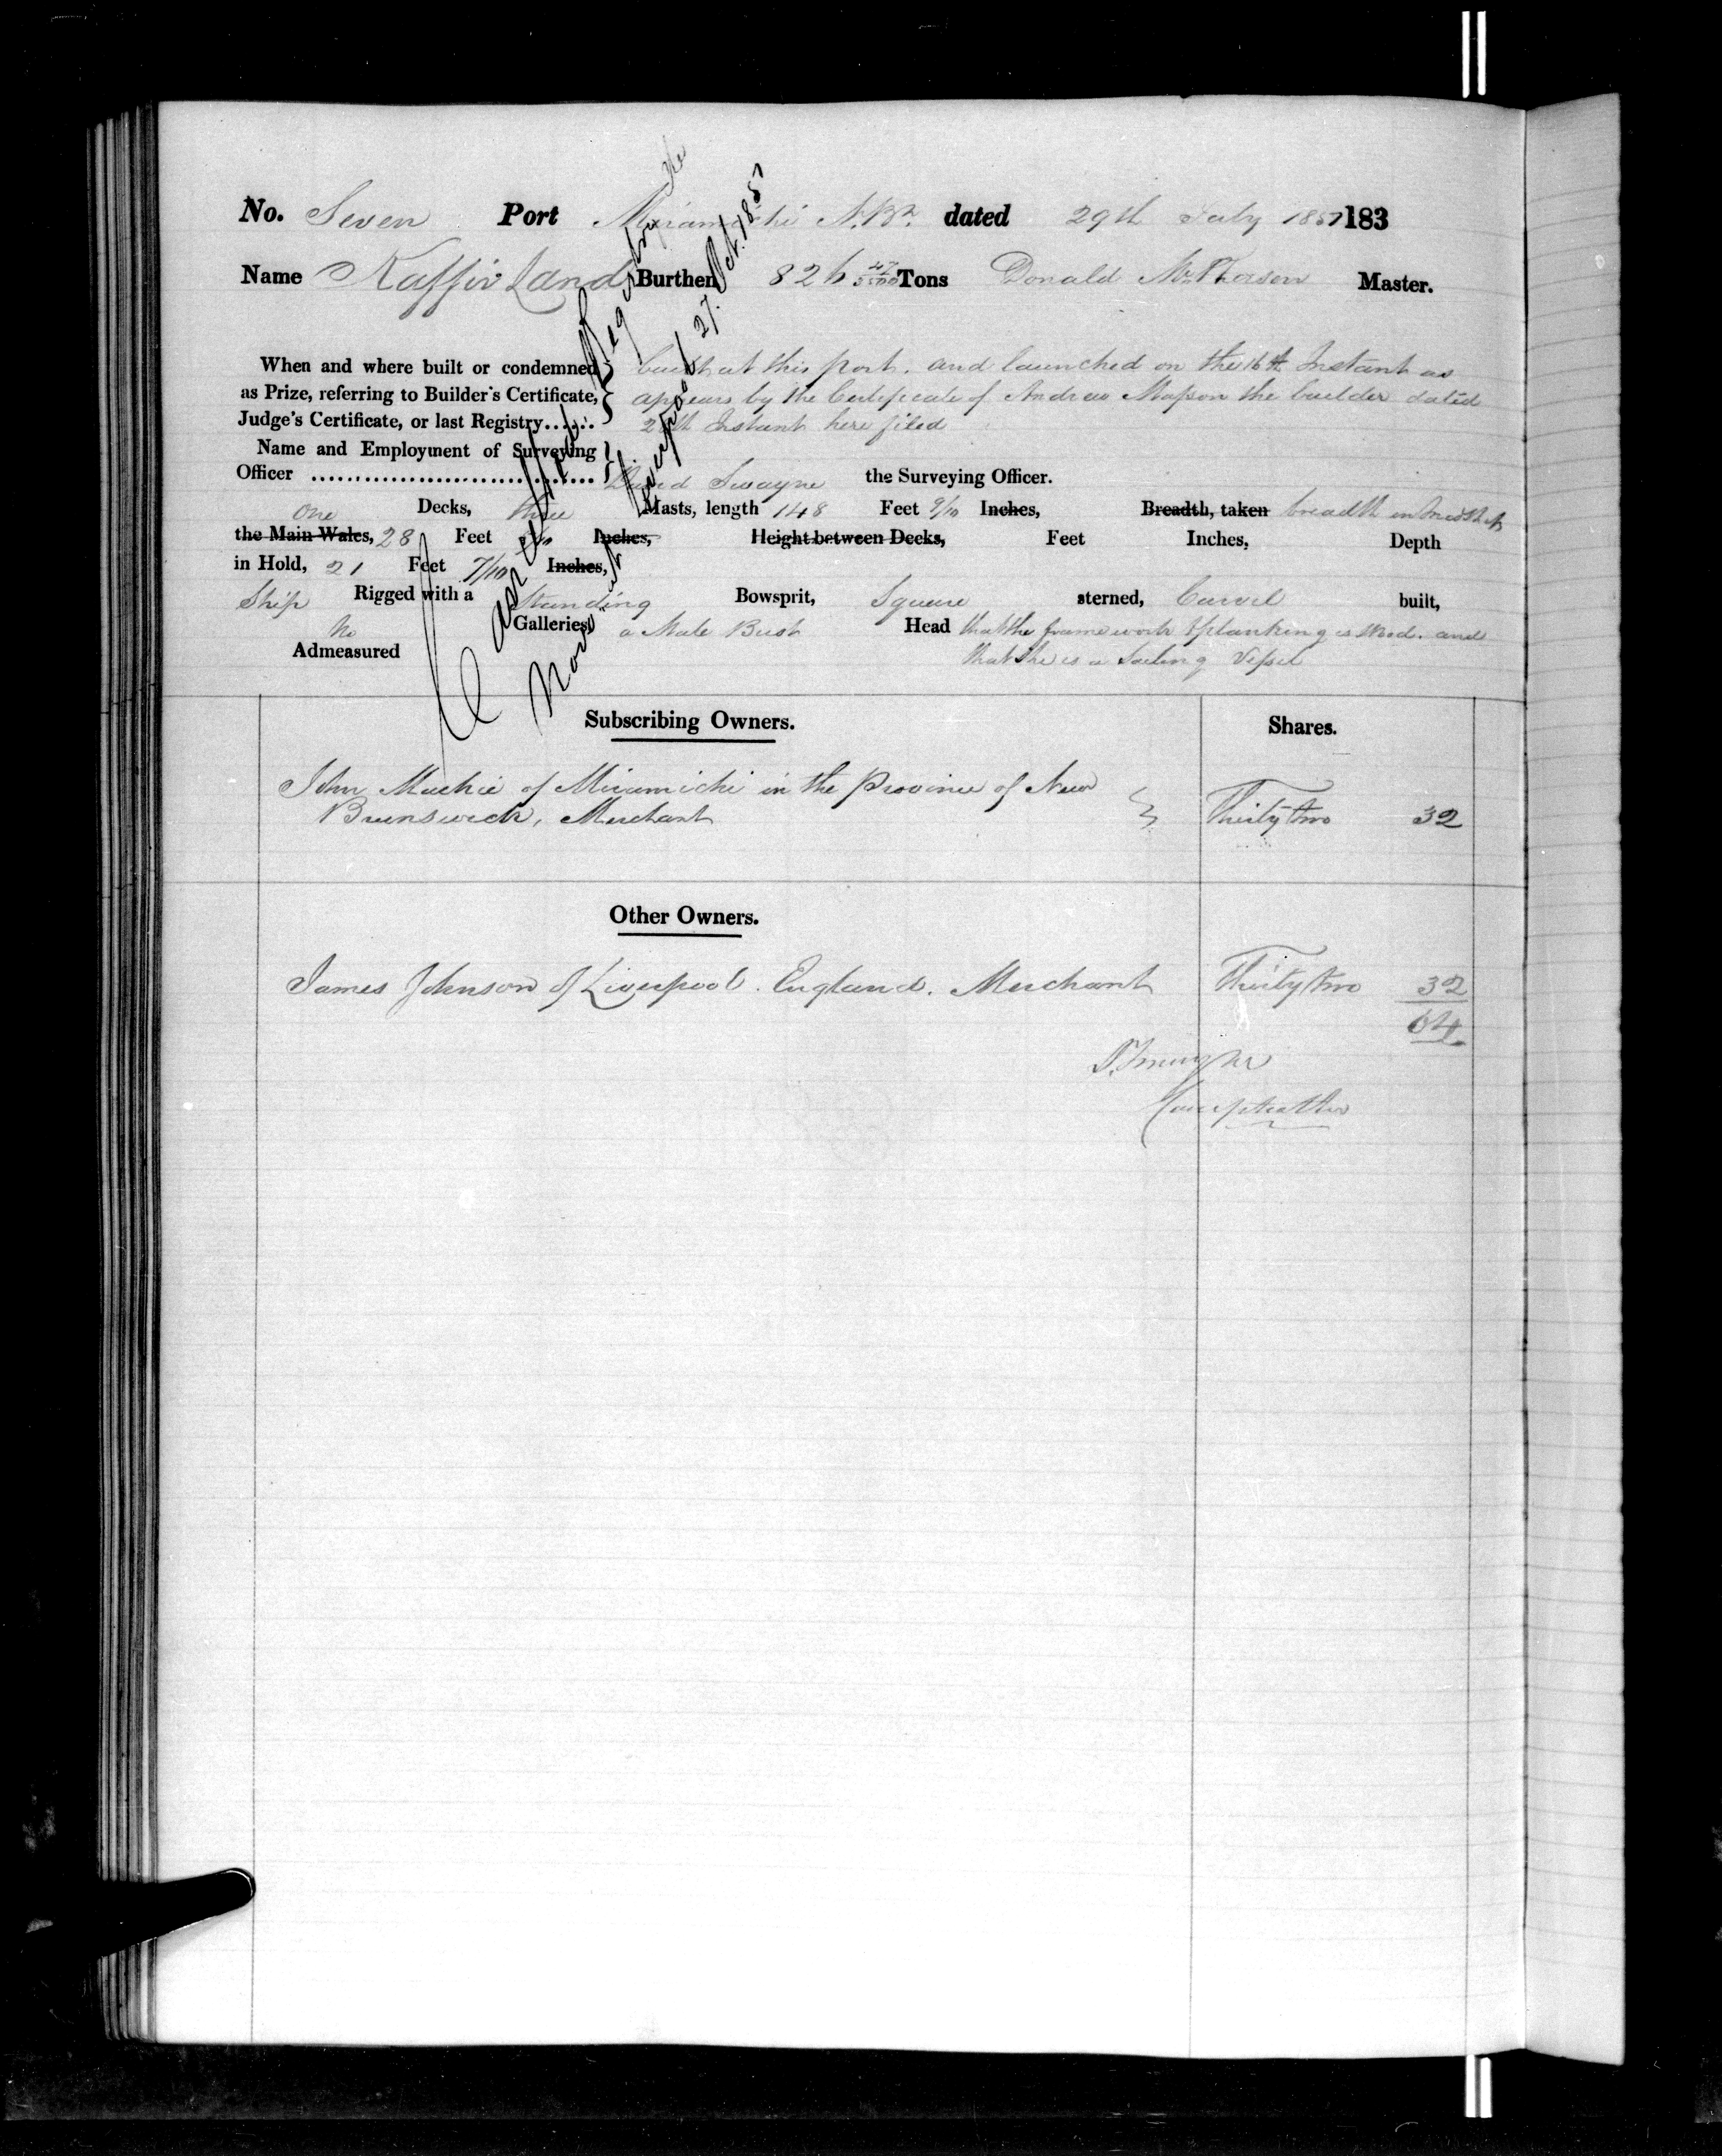 No. Seven Port Miramichi N.Bk. dated 29th July 1857 183
Name Kaffir Land Burthen 826 47/3500 Tons Donald McPherson Master.
When and where built or condemned built at this port. and launched on the 16th Instant as
as Prize, referring to Builder's Certificate, appears by the Certificate of Andrew Masson the builder dated
Judge's Certificate, or last Registry...... Instant here filed
Name and Employment of Surveying
Officer .............................. David Swayne the Surveying Officer.
One Decks, three Masts, length 148 Feet 9/10 Inches, Breadth, taken breadth in Midships
the Main Wales, 28 Feet Inches, Height between Decks, Feet Inches, Depth
in Hold, 21 Feet 7/10 Inches,
Ship Rigged with a Standing Bowsprit, Square sterned, Carvel built,
No Galleries, a Male Bust Head that the frame work & planking is Wood. and
Admeasured that she is a Sailing Vessel
Certificate of Registry
Liverpool 27. Oct. 185
Subscribing Owners. Shares.
John Mackie of Miramichi in the Province of New
Brunswick, Merchant Thirty two 32
Other Owners.
James Johnson of Liverpool. England. Merchant Thirty two 32
64